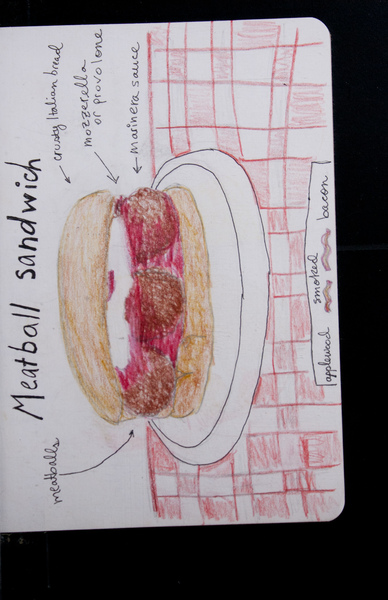 Meatball sandwich
crusty Italian bread
mozzerella
or provolone
marinera sauce
meatballs
applewood smoked bacon